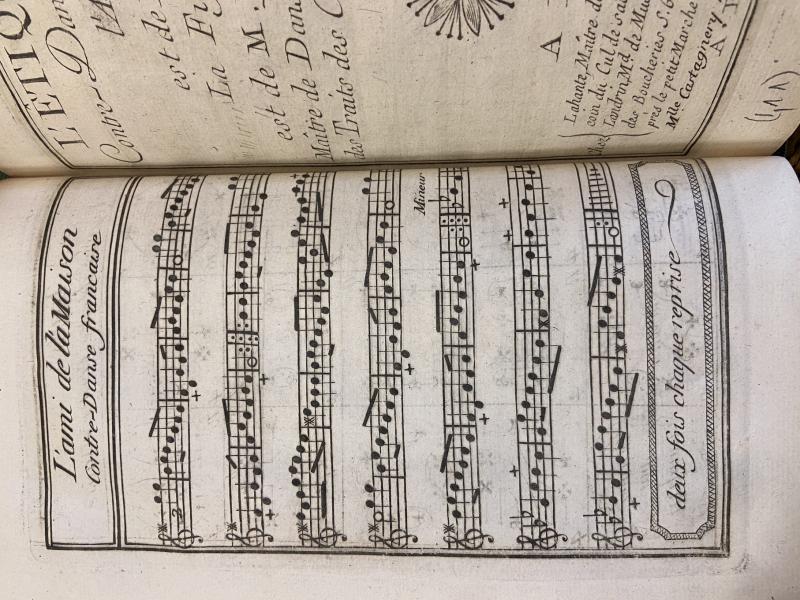 L'ETIQ
Contre-Dan
est de
La Fi
est de M.
Maître de Dans
des Traits des C
A
Lahante, Maître de
coin du Cul de sac
Landrin, Md. de Mu
des Boucheries S.
près le petit Marche
Mlle Castagnery
A
L'ami de la Maison
Contre-Danse francaise
2
Mineur
deux fois chaque reprise